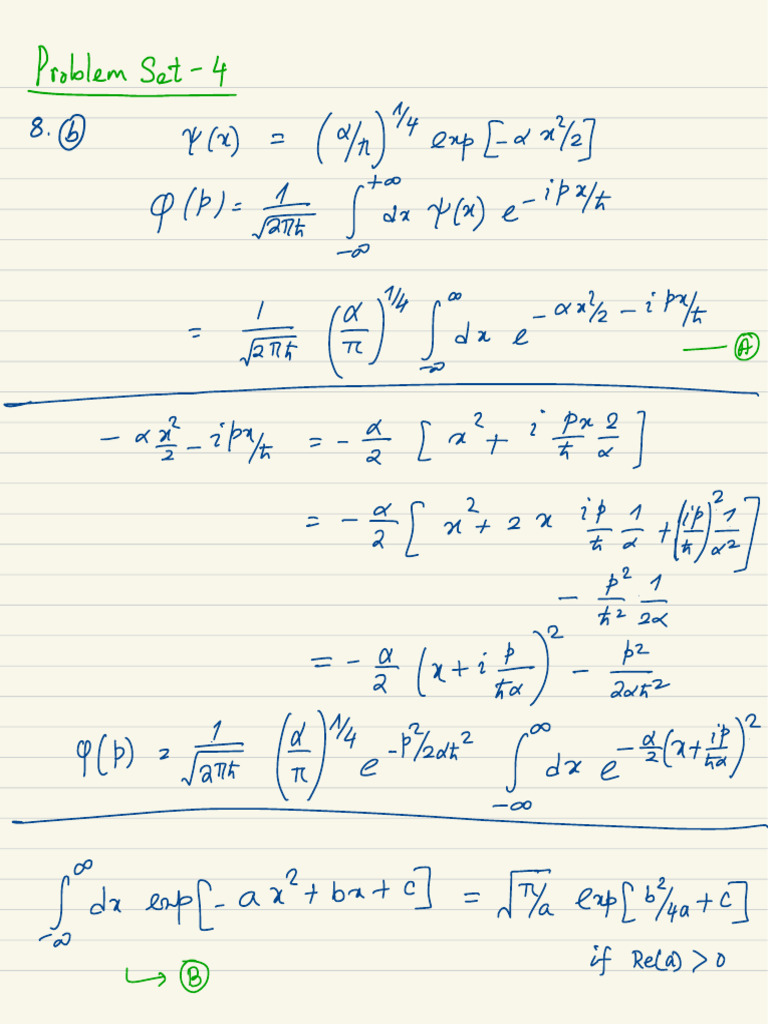 Problem Set - 4
8. (b) ψ(x) = (α/π)^{1/4} exp[-α x²/2]
φ(p) = 1/√(2πħ) ∫_{-∞}^{+∞} dx ψ(x) e^{-ipx/ħ}
= 1/√(2πħ) (α/π)^{1/4} ∫_{-∞}^{∞} dx e^{-αx²/2 - ipx/ħ} — (A)
- α x²/2 - ipx/ħ = - α/2 [x² + i px/ħ 2/α]
= - α/2 [x² + 2x ip/ħ 1/α + (ip/ħ)² 1/α²]
- p²/ħ² 1/2α
= - α/2 (x + i p/ħα)² - p²/2αħ²
φ(p) = 1/√(2πħ) (α/π)^{1/4} e^{-p²/2αħ²} ∫_{-∞}^{∞} dx e^{-α/2 (x + ip/ħα)²}
∫_{-∞}^{∞} dx exp[-ax² + bx + c] = √(π/a) exp[b²/4a + c]
if Re(a) > 0
↳ (B)